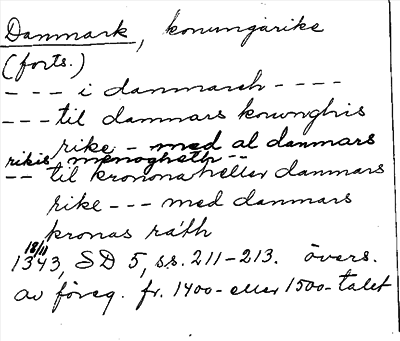 Danmark, konungarike
(forts.)
--- i danmarch ----
--- til danmars konunghis
rike - med al danmars
rikis menogheth --
-- til kronona heller danmars
rike --- med danmars
kronas rath
18/11
1343, SD 5, ss. 211-213. övers.
av föreg. fr. 1400- eller 1500-talet